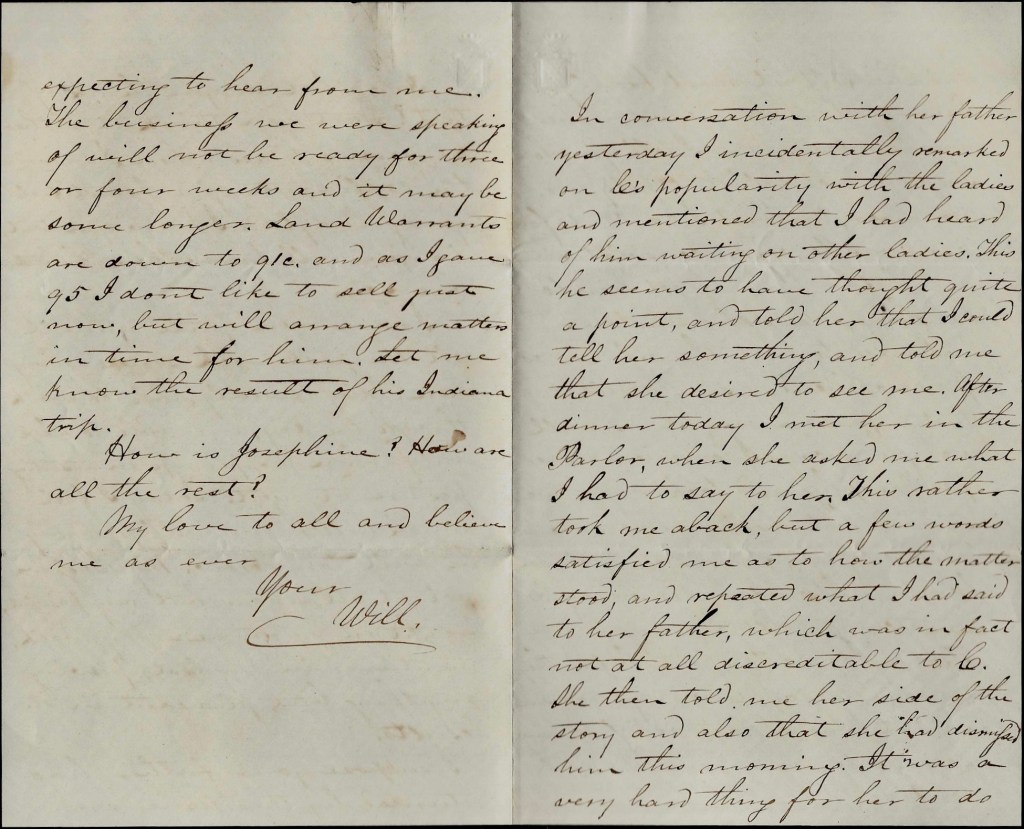 expecting to hear from me.
The business we were speaking
of will not be ready for three
or four weeks and it may be
some longer. Land Warrants
are down to 91c. and as I gave
95 I dont like to sell just
now, but will arrange matters
in time for him. Let me
know the result of his Indiana
trip.
How is Josephine? How are
all the rest?
My love to all and believe
me as ever
Your
Will.
In conversation with her father
yesterday I incidentally remarked
on C's popularity with the ladies
and mentioned that I had heard
of him waiting on other ladies. This
he seems to have thought quite
a point, and told her that I could
tell her something, and told me
that she desired to see me. After
dinner today I met her in the
Parlor, when she asked me what
I had to say to her. This rather
took me aback, but a few words
satisfied me as to how the matter
stood, and repeated what I had said
to her father, which was in fact
not at all discreditable to C.
She then told me her side of the
story and also that she had dismissed
him this morning. It was a
very hard thing for her to do